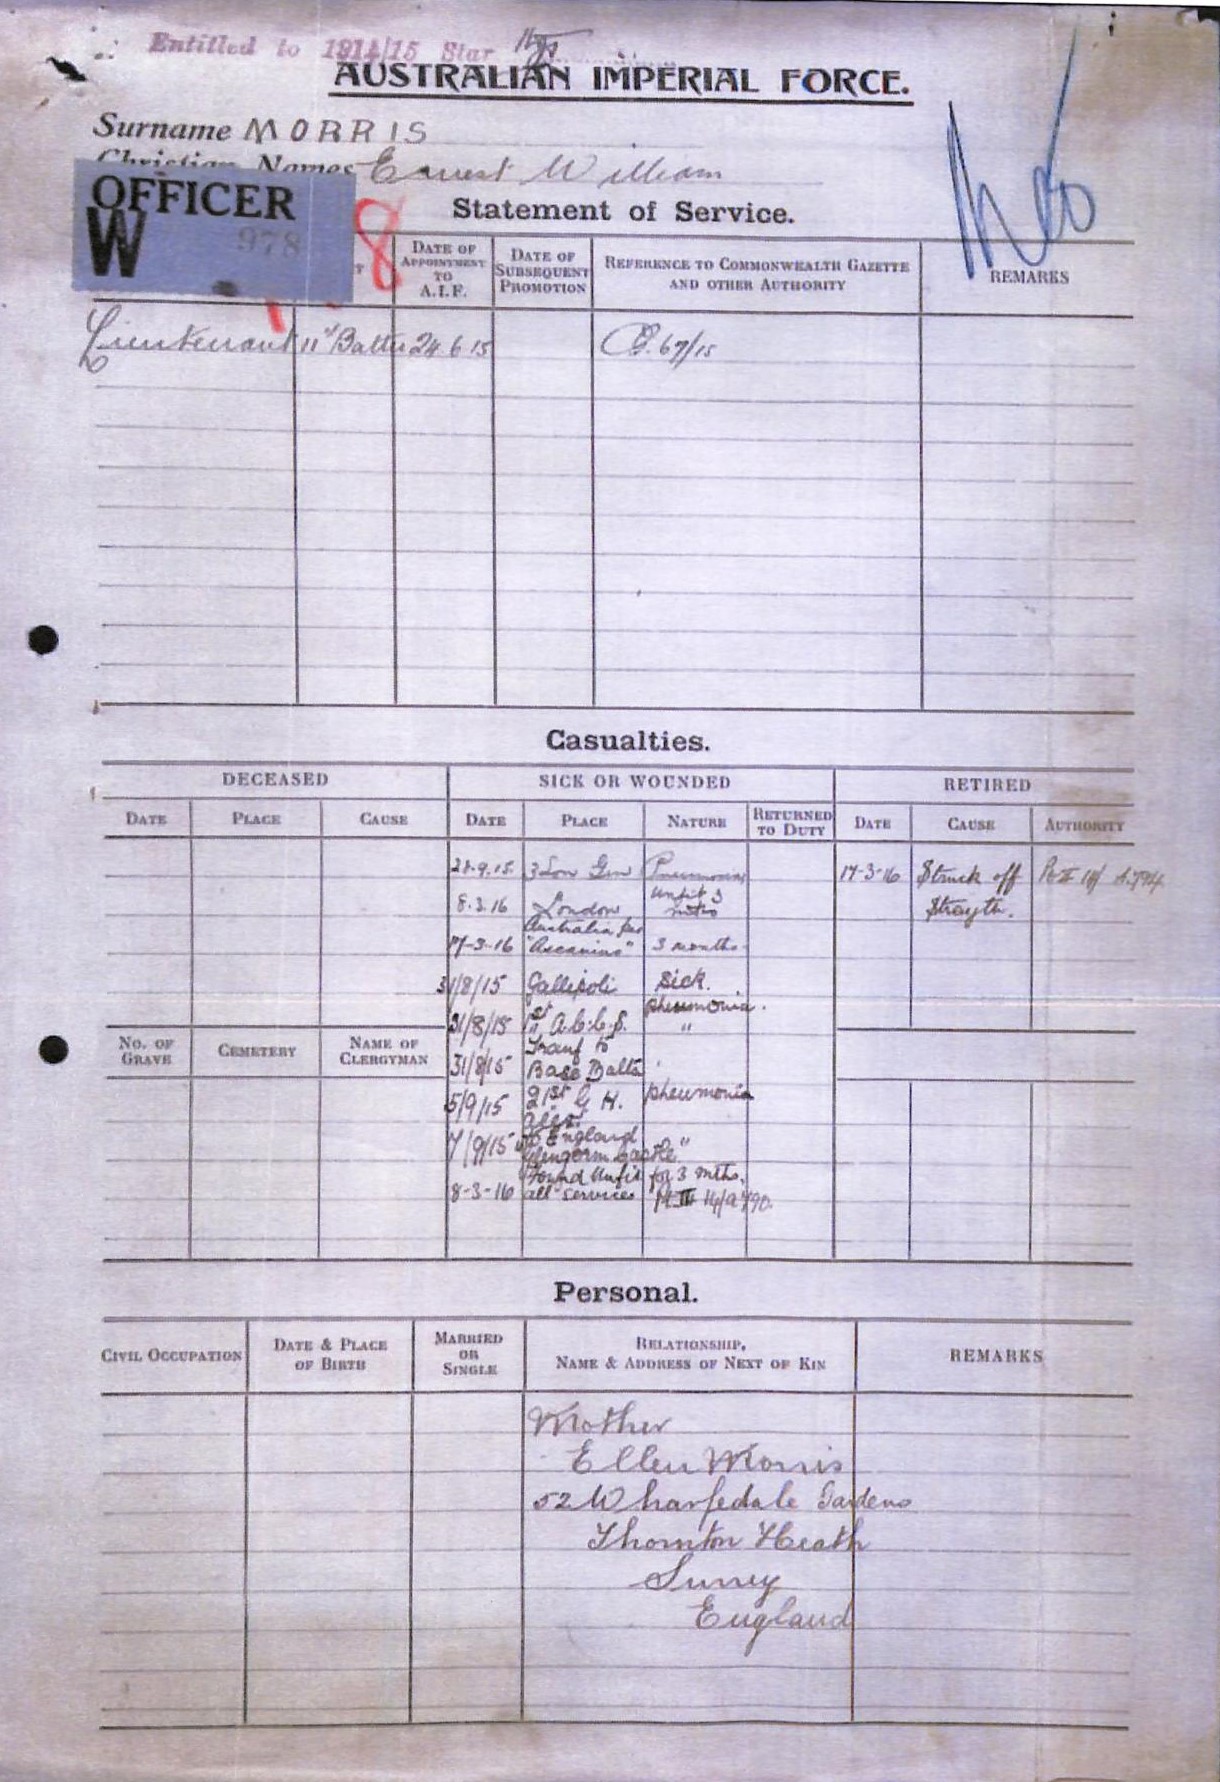 Entitled to 1914/15 Star
AUSTRALIAN IMPERIAL FORCE.
Surname MORRIS
Christian Names Ernest William
OFFICER
W 978
8
Statement of Service.
DATE OF APPOINTMENT TO A.I.F.
DATE OF SUBSEQUENT PROMOTION
REFERENCE TO COMMONWEALTH GAZETTE AND OTHER AUTHORITY
REMARKS
Lieutenant 11th Battn 24 6 15 67/15
Casualties.
DECEASED SICK OR WOUNDED RETIRED
DATE PLACE CAUSE DATE PLACE NATURE RETURNED TO DUTY DATE CAUSE AUTHORITY
28.9.15 3 Lon Gen Pneumonia 17-3-16 Struck off
Strength.
8.3.16 London Unfit 3 mths
17-3-16 Australia per "Ascanius" 3 months
31/8/15 Gallipoli Sick.
pneumonia.
31/8/15 1st A.C.C.S. "
31/8/15 Transf to Base
5/9/15 21st G H. Alex. pneumonia
7/9/15 to England "Glengorm Castle" "
8-3-16 Found Unfit for 3 mths.
all services
No. OF GRAVE CEMETERY NAME OF CLERGYMAN
Personal.
CIVIL OCCUPATION
DATE & PLACE OF BIRTH
MARRIED OR SINGLE
RELATIONSHIP, NAME & ADDRESS OF NEXT OF KIN
REMARKS
Mother
Ellen Morris
52 Wharfedale Gardens
Thornton Heath
Surrey
England